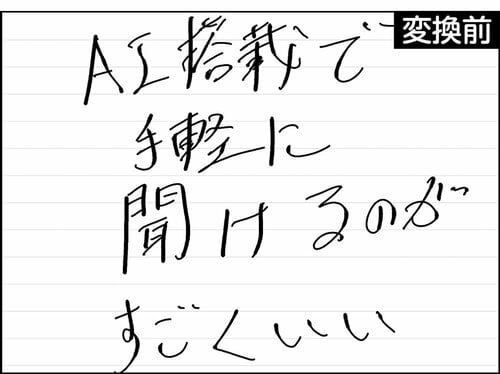 変換前
AI搭載で
手軽に
聞けるのが
すごくいい